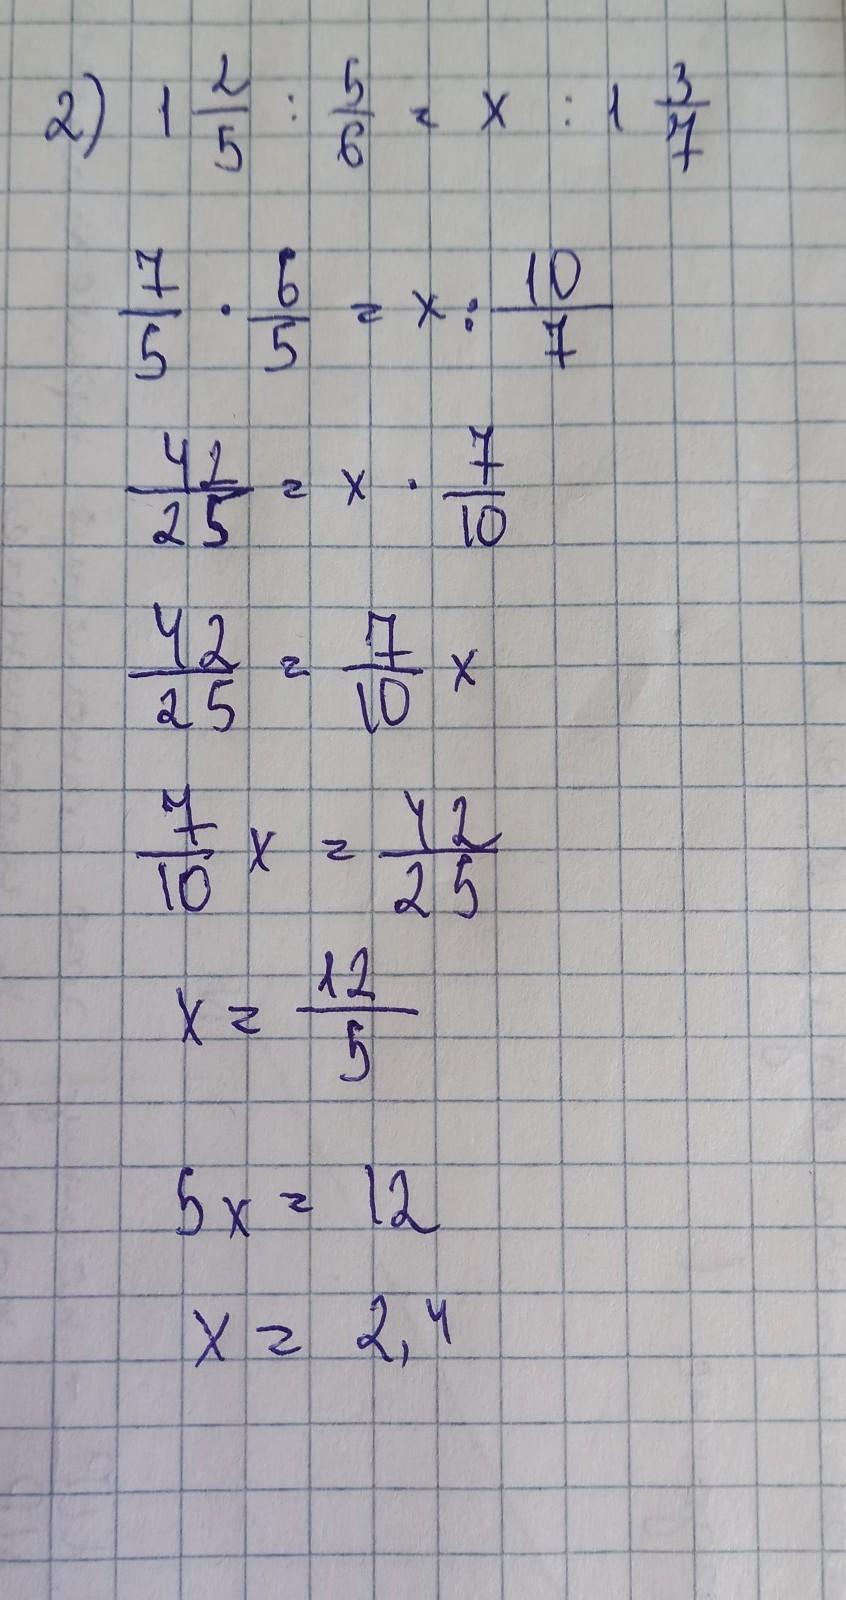 2) 1 2/5 : 5/6 = x : 1 3/7
7/5 · 6/5 = x : 10/7
42/25 = x · 7/10
42/25 = 7/10 x
7/10 x = 42/25
x = 12/5
5x = 12
x = 2,4